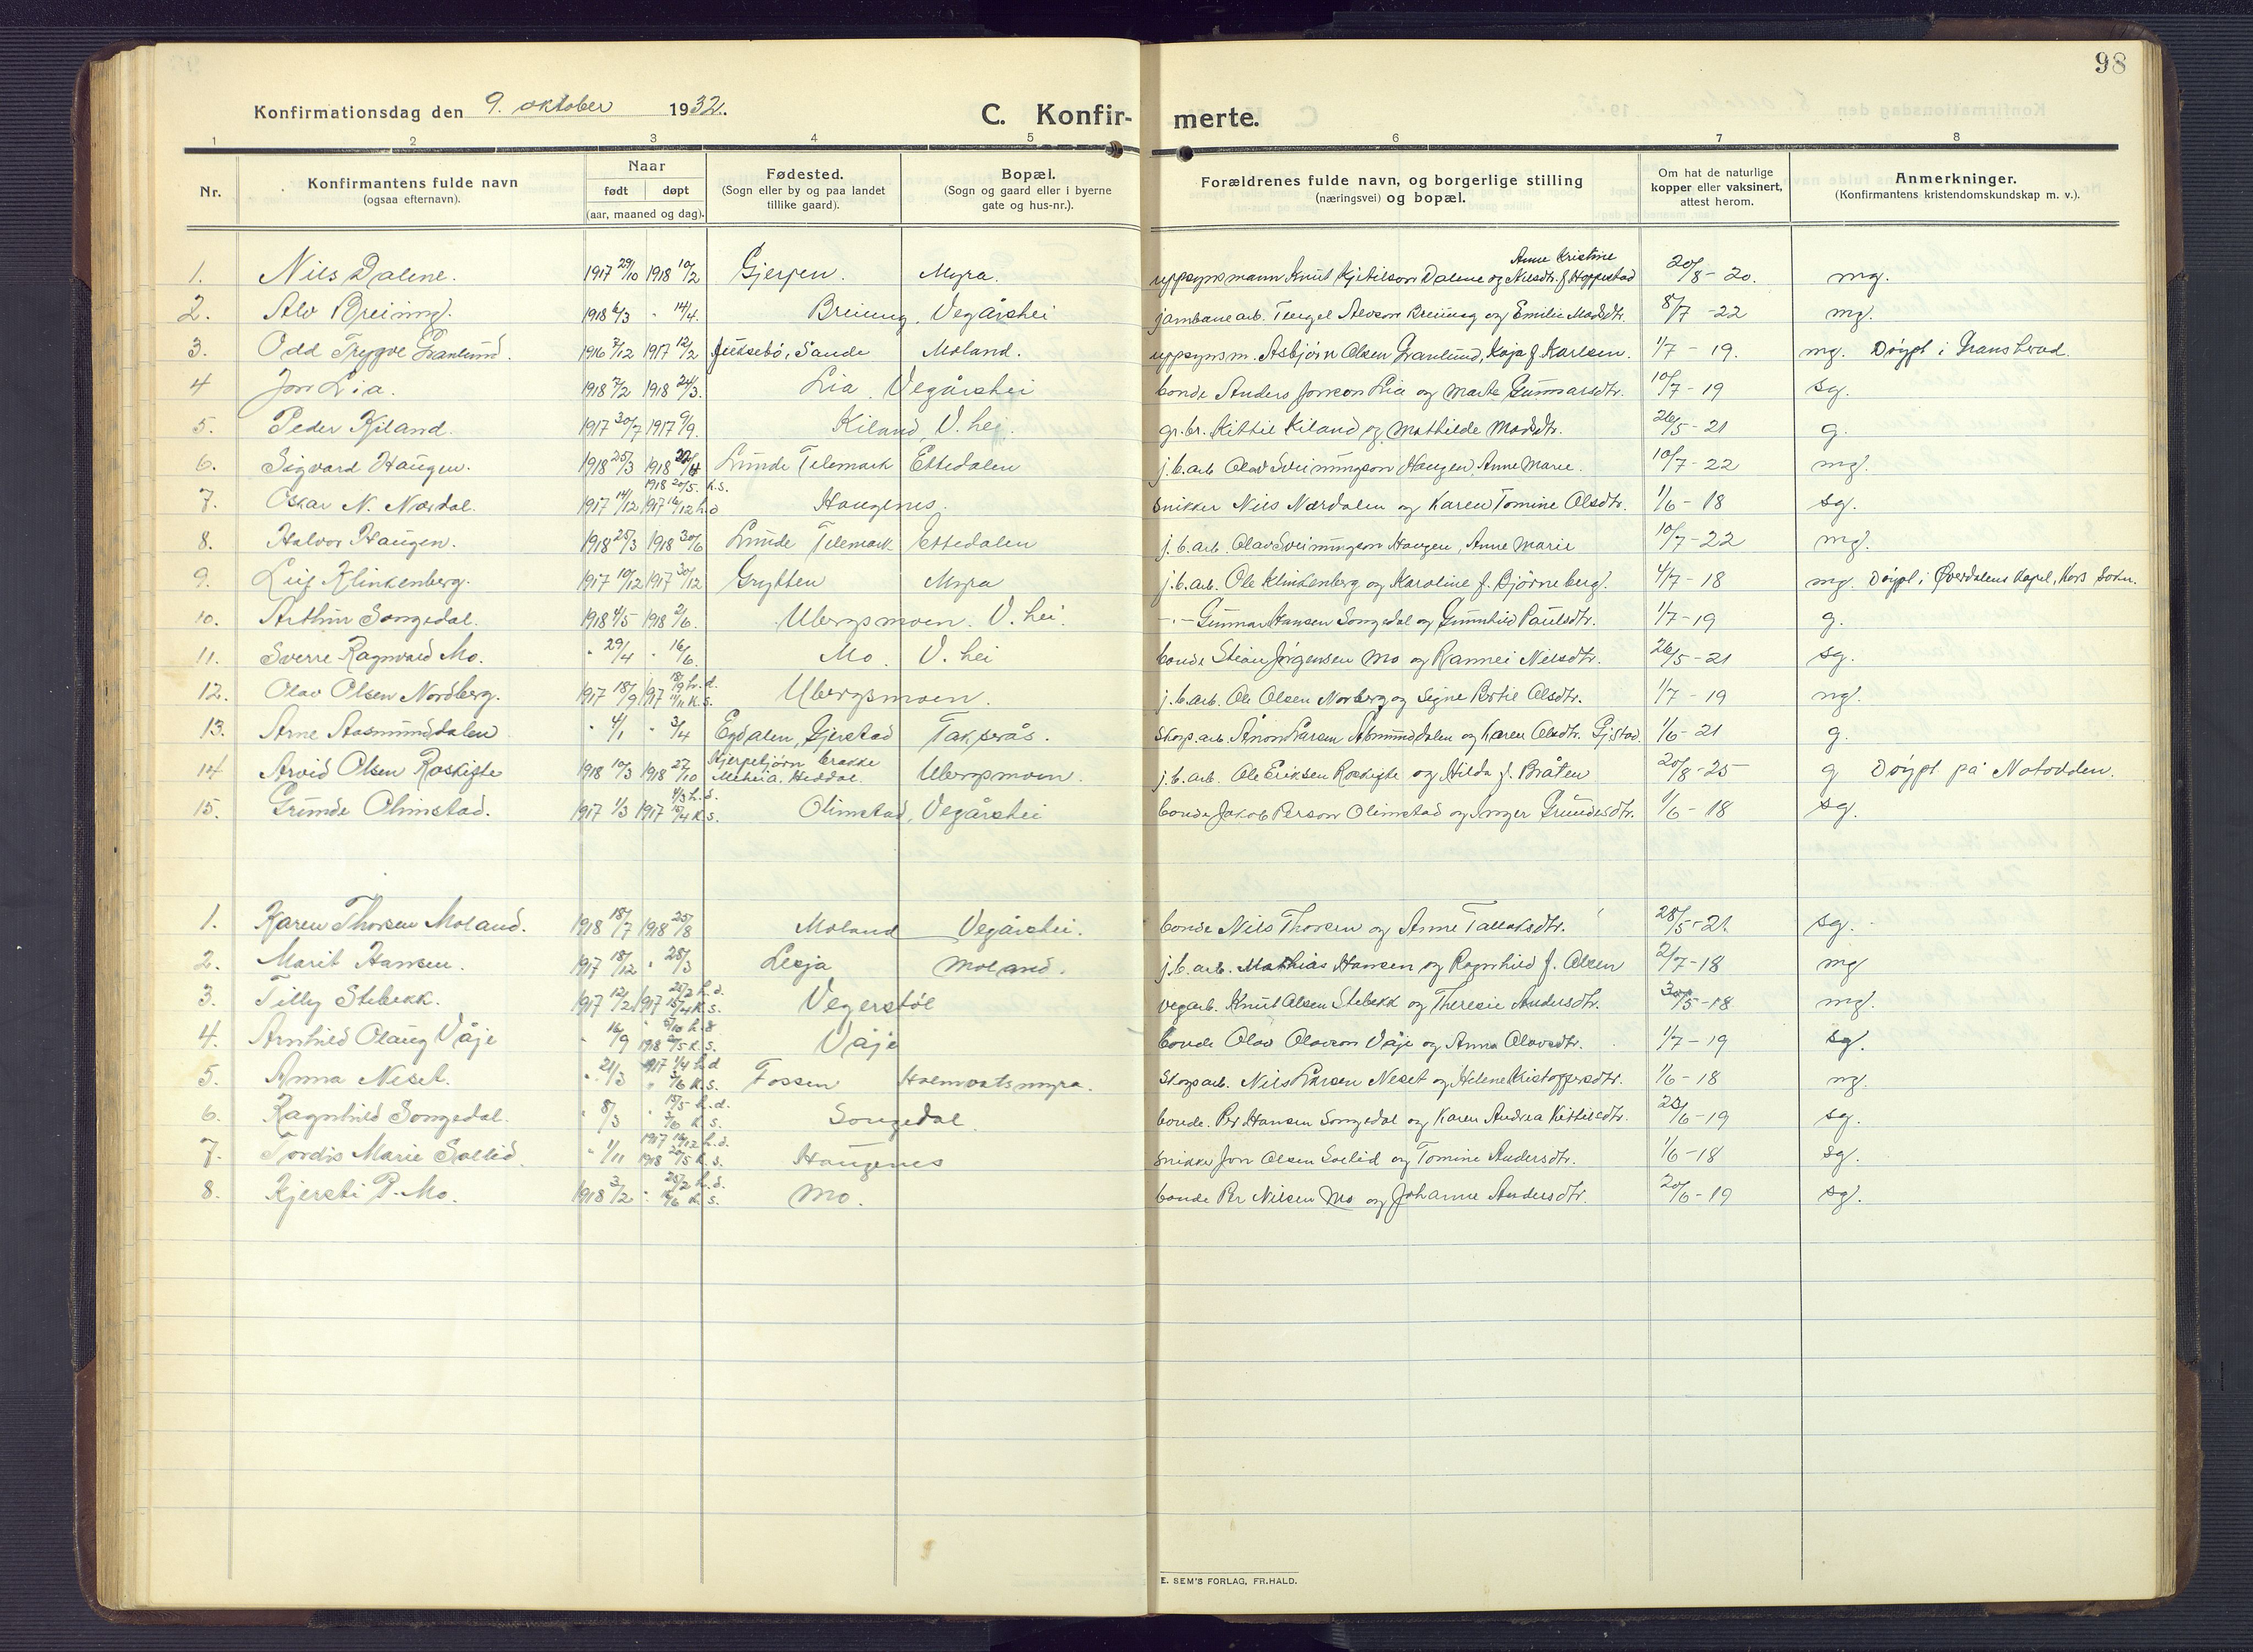 98
Konfirmationsdag den 9. oktober 1932.
C. Konfir- merte.
1 2 3 4 5 6 7 8
Nr.
Konfirmantens fulde navn
(ogsaa efternavn).
Naar
født døpt
(aar, maaned og dag).
Fødested.
(Sogn eller by og paa landet
tillike gaard).
Bopæl.
(Sogn og gaard eller i byerne
gate og hus-nr.).
Forældrenes fulde navn, og borgerlige stilling
(næringsvei) og bopæl.
Om hat de naturlige
kopper eller vaksinert,
attest herom.
Anmerkninger.
(Konfirmantens kristendomskundskap m. v.).
Anne Kristine
1. Nils Dalene. 1917 29/10 1918 10/2 Gjerpen. Myra. uppsynsmann Knut Kjetilson Dalene og Nilsdtr. f. Hoppestad 20/8-20. mg.
2. Alv Breiung. 1918 6/3 - 14/4. Breiung, Vegårshei jarnbanearb. Tengel Alvson Breiung og Emilie Madsdtr. 8/7-22 mg.
3. Odd Trygve Granlund. 1916 7/12 1917 12/2 Juksebö, Sande Moland. uppsynsm. Asbjörn Olsen Granlund, Kaja f. Karlsen. 1/7-19. mg. Döypt i Gransherad.
4 Jon Lia. 1918 7/2 1918 24/3. Lia, Vegårshei bonde Anders Jonson Lia og Marte Gunnarsdtr. 10/7-19 sg.
5. Peder Kiland. 1917 30/7 1917 9/9. Kiland, V. hei. gr.br. Kittil Kiland og Mathilde Madsdtr. 26/5-21 g.
6. Sigvard Haugen. 1918 25/3 1918 Lunde Telemark Ettedalen j.b.arb. Olav Sveinungson Haugen, Anne Marie. 10/7-22 mg.
1918 20/5. k.s.
7. Oskar N. Nærdal. 1917 14/12 1917 16/12 h.d Haugenes. snikker Nils Nærdalen og Karen Tomine Olsdtr. 1/6-18 sg.
8. Halvor Haugen. 1918 25/3 1918 30/6 Lunde Telemark Ettedalen j.b.arb. Olav Sveinungson Haugen, Anne Marie 10/7-22 mg.
9. Leif Klinkenberg. 1917 10/12 1917 30/12 Grytten Myra j.b.arb. Ole Klinkenberg og Karoline f. Björneberg. 4/7-18 mg. Döypt i Øverdalens Kapel, Kors Sokn.
10. Arthur Songedal. 1918 4/5 1918 2/6. Ubergsmoen. V. hei. -"- Gunnar Hansen Songedal og Gunnhild Paulsdtr. 1/7-19 g.
11. Sverre Ragnvald Mo. " 29/4 " 16/6. Mo. V. hei bonde Stian Jörgensen Mo og Rannei Nilsdtr. 26/5-21 sg.
18/9 h.d.
12. Olav Olsen Nordberg. 1917 18/9 1917 11/11 k.s. Ubergsmoen. j.b.arb. Ole Olsen Norberg og Signe Bertie Olsdtr. 1/7-19 mg.
13. Arne Aasmunddalen " 4/1 " 3/4 Egdalen, Gjerstad Takserås. skogs.arb. Ånon Larsen Åsmunddalen og Karen Olsdtr. Gjstad. 1/6-21 g.
14 Arvid Olsen Roskifte 1918 10/3 1918 27/10 Heddal. Ubergsmoen. j.b.arb. Ole Eriksen Roskifte og Hilda f. Bråten 20/8-25 g Döypt på Notodden.
4/3 h.d.
15. Grunde Olimstad. 1917 1/3 1917 15/4 k.s. Olimstad, Vegårshei bonde Jakob Person Olimstad og Inger Grundesdtr. 1/6-18 sg.
1. Karen Thorsen Moland. 1918 18/7 1918 25/8 Moland Vegårshei. bonde Nils Thorsen og Anne Tallaksdtr. 28/5-21. sg.
2. Marit Hansen. 1917 18/12 " 28/3 Lesja Moland. j.b.arb. Mathias Hansen og Ragnhild f. Olsen 2/7-18 mg
25/2 h.d.
3. Tilly Stebekk. 1917 12/2 1917 15/4 k.s. Vegerstöl vegarb. Knut Olsen Stebekk og Theresie Andersdtr. 30/5-18 mg.
4. Arnhild Olaug Våje " 16/9 1918 k.s. Våje bonde Olav Olavson Våje og Anna Olavsdtr. 1/7-19 sg.
1917 1/4 h.d
5. Anna Neset. " 21/3 " 3/6 k.s. Fossen Holmvatsmyra. skogsarb. Nils Larsen Neset og Helene Kristoffersdtr. 1/6-18 mg.
h.d.
6. Ragnhild Songedal. " 8/3 " 3/6 k.s. Songedal. bonde. Per Hansen Songedal og Karen Andrea Kittilsdtr. 20/6-19 sg.
1917 16/12 h.d.
7. Tordis Marie Sollid. " 1/11 1918 20/5 k.s. Haugenes snikker Jon Olsen Solid og Tomine Andersdtr. 1/6-18 sg.
25/2 h.d.
8. Kjersti P. Mo. 1918 3/2 " 16/6 k.s. Mo. bonde Per Nilsen Mo og Johanne Andersdtr. 20/6-19 sg.
E. SEM'S FORLAG, FR.HALD.